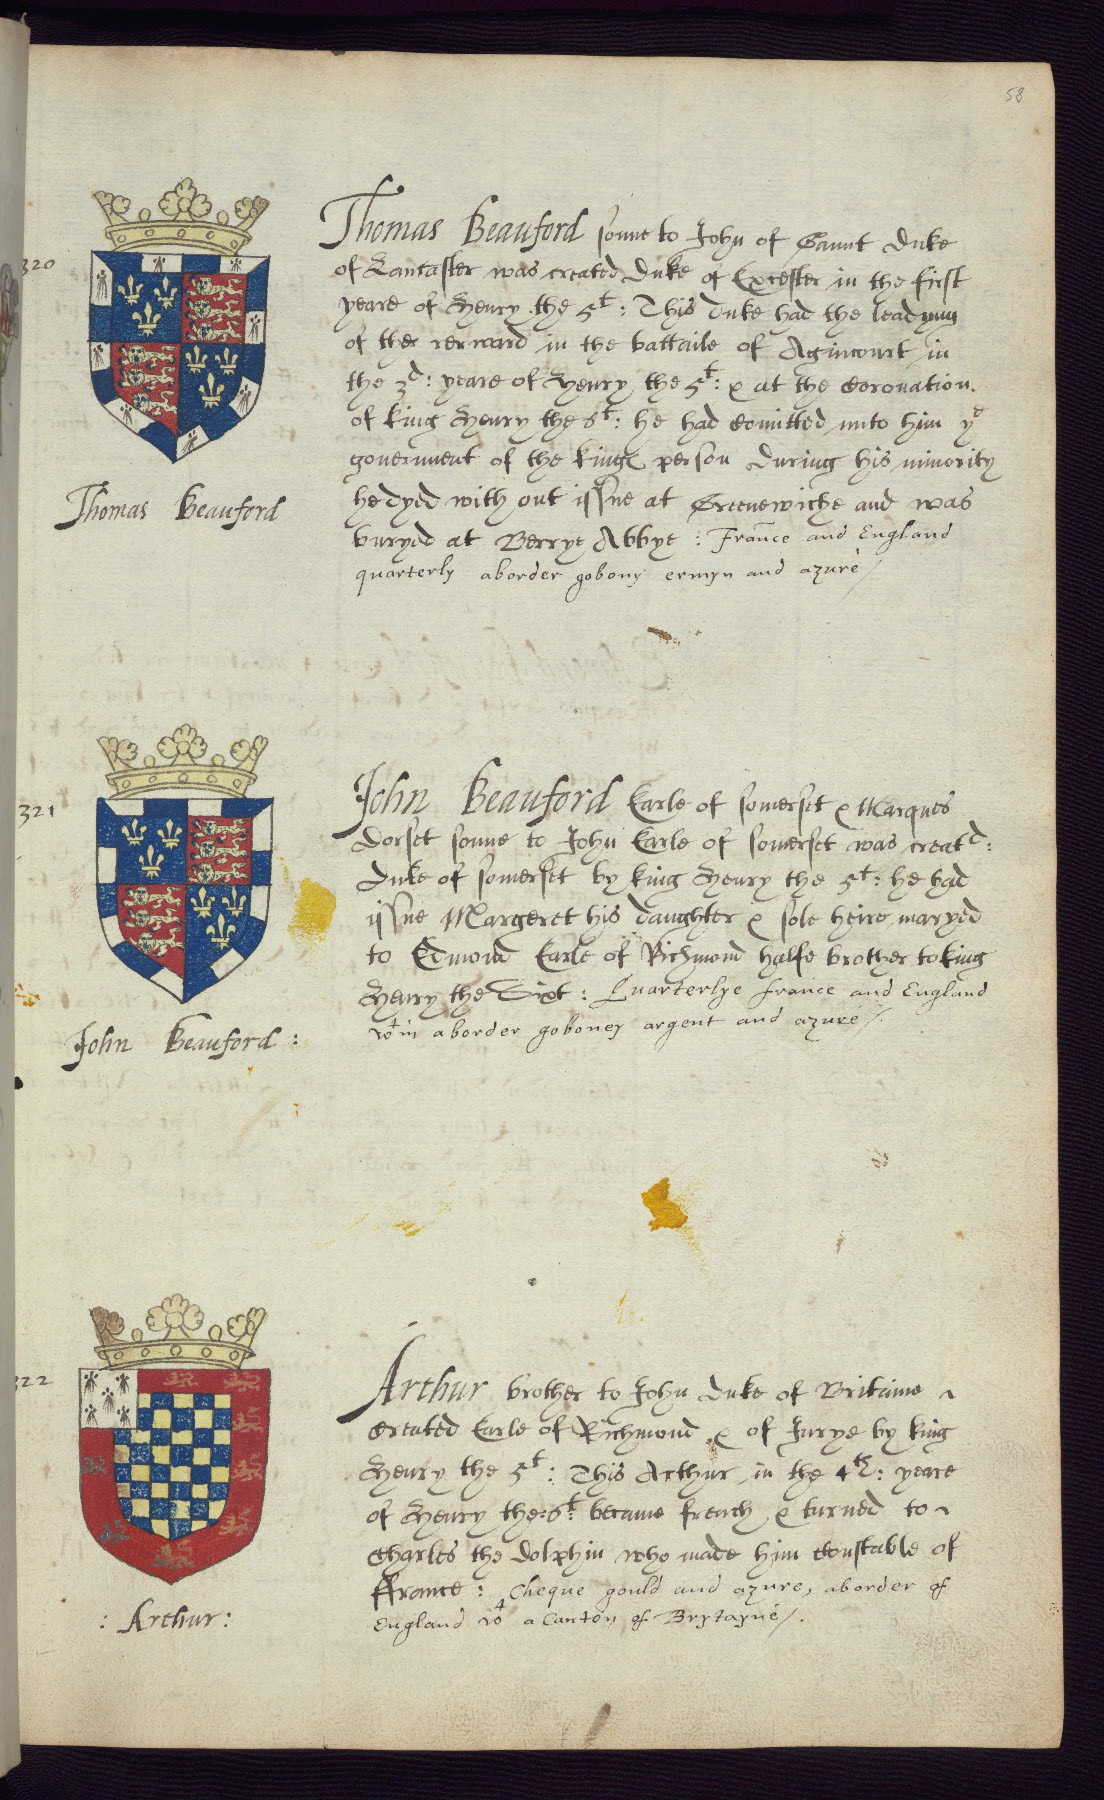 58
320
Thomas Beauford sonne to John of Gaunt Duke
of Lancaster was created Duke of Excester in the first
yeare of Henry the 5t: This Duke had the leadyng
of the rerward in the battaile of Agincourt in
the 3d: yeare of Henry the 5t: & at the Coronation
of king Henry the 6t: he had comitted unto him ye
government of the kings person during his minority
he dyed with out issue at Greenewiche and was
buryed at Berrye Abbye : France and England
quarterly aborder gobony ermyn and azure /
Thomas Beauford
321
John Beauford Earle of Somerset & Marques
Dorset sonne to John Earle of Somerset was creatd:
Duke of Somerset by king Henry the 5t: he had
issue Margeret his daughter & sole heire maryed
to Edmond Earle of Richmond halfe brother to king
Henry the Sixt : Quarterlye france and England
wt in aborder goboney argent and azure /
John Beauford :
322
Arthur brother to John Duke of Britaine ~
Created Earle of Richmond & of Iurye by king
Henry the 5t: This Arthur in the 4th: yeare
of Henry the: 6t: became french & turned to ~
Charles the Dolphin who made him Constable of
ffrance : Cheque gould and azure, aborder of
England wt a Canton of Brytayne /.
: Arthur :